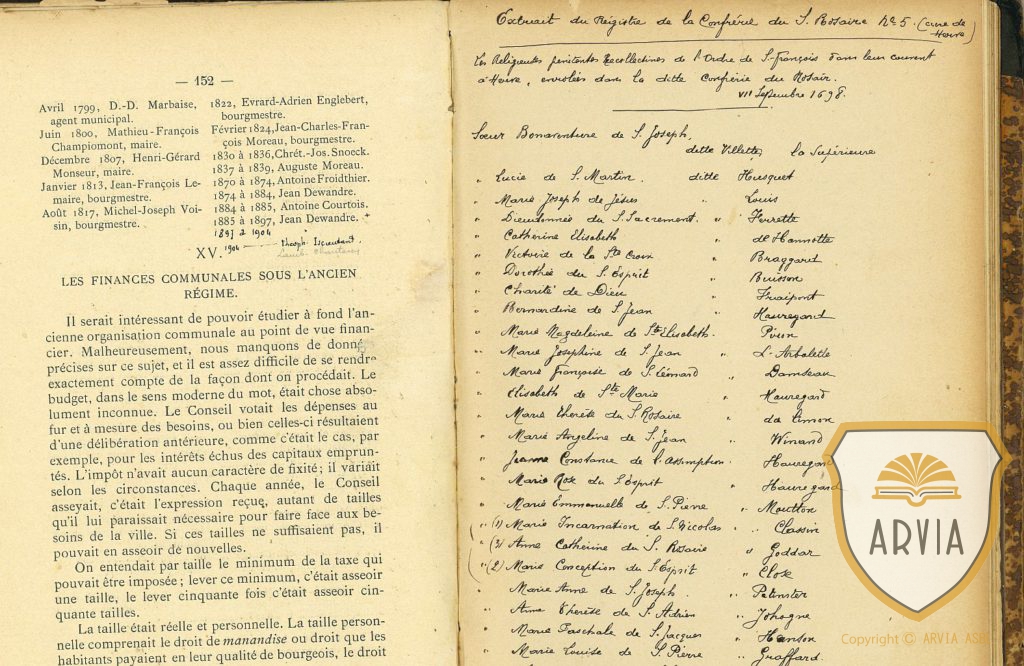 — 152 —
Avril 1799, D.-D. Marbaise,
agent municipal.
Juin 1800, Mathieu-François
Championmont, maire.
Décembre 1807, Henri-Gérard
Monseur, maire.
Janvier 1813, Jean-François Le-
maire, bourgmestre.
Août 1817, Michel-Joseph Voi-
sin, bourgmestre.
1822, Evrard-Adrien Englebert,
bourgmestre.
Février 1824, Jean-Charles-Fran-
çois Moreau, bourgmestre.
1830 à 1836, Chrét.-Jos. Snoeck.
1837 à 1839, Auguste Moreau.
1870 à 1874, Antoine Froidthier.
1874 à 1884, Jean Dewandre.
1884 à 1885, Antoine Courtois.
1885 à 1897, Jean Dewandre. +
1897 à 1904
1904
XV.
LES FINANCES COMMUNALES SOUS L'ANCIEN
RÉGIME.
Il serait intéressant de pouvoir étudier à fond l'an-
cienne organisation communale au point de vue finan-
cier. Malheureusement, nous manquons de donné
précises sur ce sujet, et il est assez difficile de se rendre
exactement compte de la façon dont on procédait. Le
budget, dans le sens moderne du mot, était chose abso-
lument inconnue. Le Conseil votait les dépenses au
fur et à mesure des besoins, ou bien celles-ci résultaient
d'une délibération antérieure, comme c'était le cas, par
exemple, pour les intérêts échus des capitaux emprun-
tés. L'impôt n'avait aucun caractère de fixité; il variait
selon les circonstances. Chaque année, le Conseil
asseyait, c'était l'expression reçue, autant de tailles
qu'il lui paraissait nécessaire pour faire face aux be-
soins de la ville. Si ces tailles ne suffisaient pas, il
pouvait en asseoir de nouvelles.
On entendait par taille le minimum de la taxe qui
pouvait être imposée; lever ce minimum, c'était asseoir
une taille, le lever cinquante fois c'était asseoir cin-
quante tailles.
La taille était réelle et personnelle. La taille person-
nelle comprenait le droit de manandise ou droit que les
habitants payaient en leur qualité de bourgeois, le droit
Extrait du Régistre de la Confrérie du S. Rosaire No 5. (cure de
Herve)
Les Religieuses penitentes Recollectines de l'Ordre de S. François dans leur couvent
à Herve, enrolées dans la ditte Confrérie du Rosair.
VII Septembre 1698.
Sœur Bonaventure de S. Joseph,
ditte Villette, la Supérieure
" Lucie de S. Martin. ditte Husquet
" Marie Joseph de Jésus " Louis
" Dieudonnée du S. Sacrement. " Ferrette
" Catherine Elisabeth " de Hannotte
" Victoire de la Ste Croix " Braggard
" Dorothée du S. Esprit " Buisson
" Charité de Dieu " Fraipont
" Bernardine de S. Jean " Hauregard
" Marie Magdeleine de Ste Elisabeth. " Piron
" Marie Josephine de S. Jean " L'Arbalette
" Marie Françoise de S. Léonard " Damseau
" Elisabeth de Ste Marie " Hauregard
" Marie thérèse du S. Rosaire " da Limon
" Marie Angeline de S. Jean " Winand
" Jeanne Constance de l'Assomption. " Hauregard
" Marie Rose du S. Esprit " Hauregard
" Marie Emmanuelle de S. Pierre " Moutton
" (1) Marie Incarnation de S. Nicolas " Classin
" (3) Anne Catherine du S. Rosaire " Goddar
" (2) Marie Conception du S. Esprit " Close
" Marie Anne de S. Joseph. " Petinster
" Anne Thérèse de S. Adrien " Johogne
" Marie Paschale de S. Jacques " Hanson
" Marie Louise de S. Pierre " Graffard
ARVIA
Copyright © ARVIA